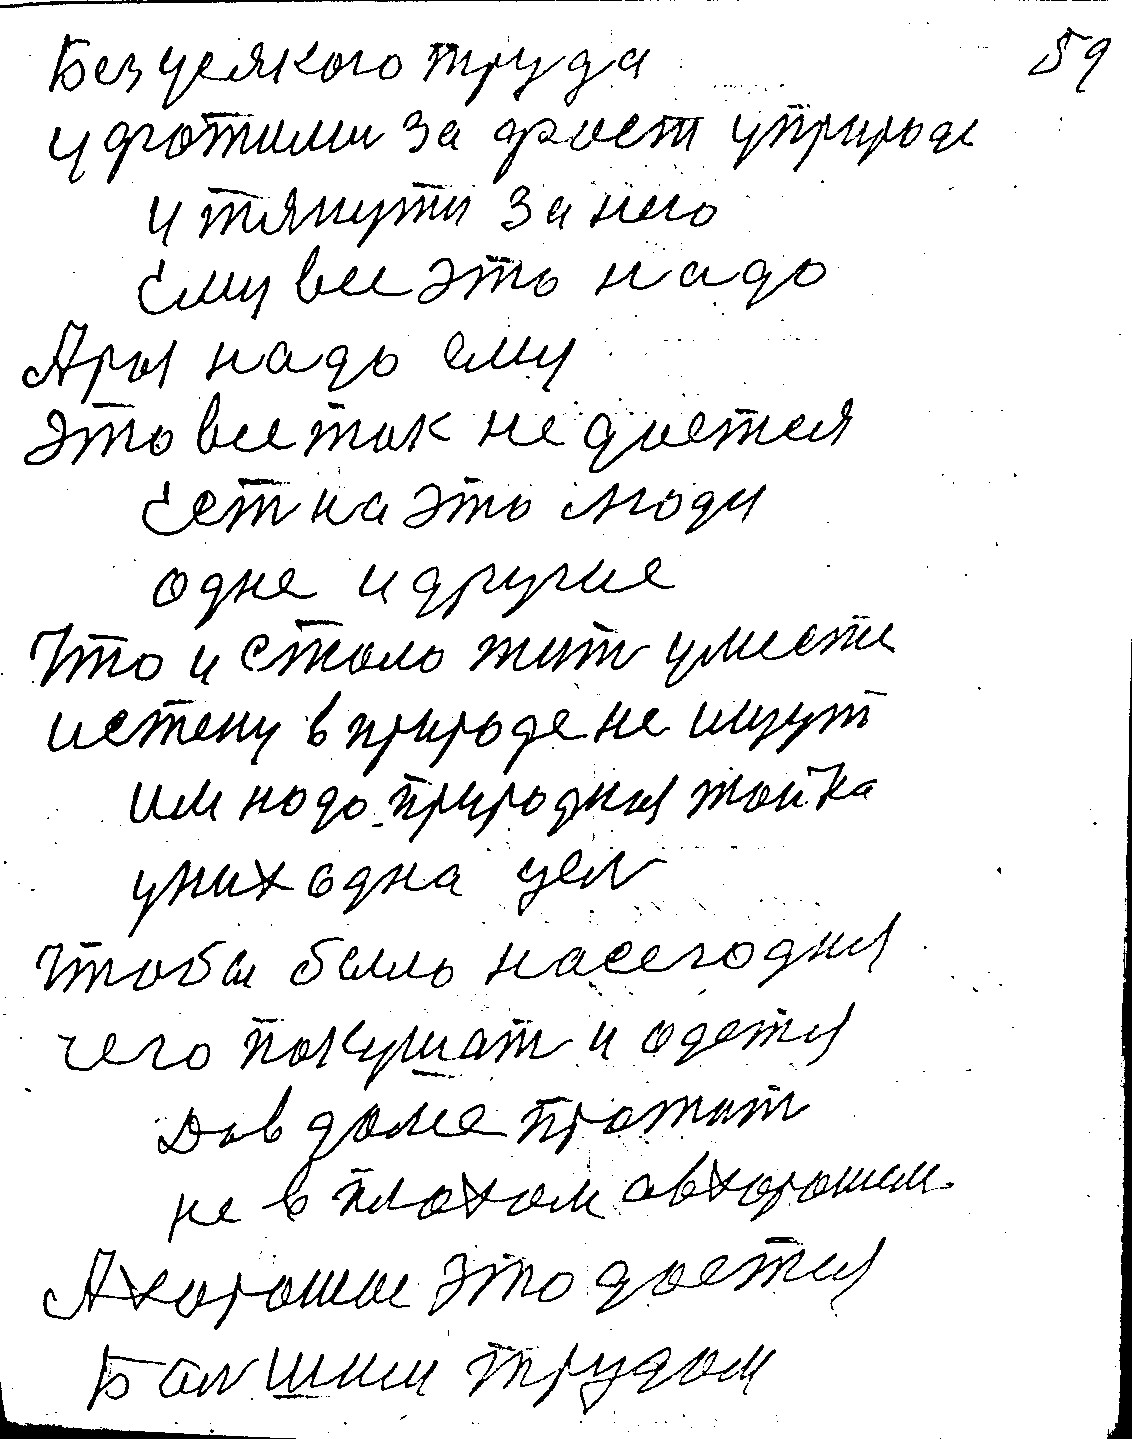 59
Без усякого труда
ухотими за хвост у природе
и тянути за него
Ему все это надо
Ары надо ему
Это все так не дается
Ест на это люди
одне и другие
Что и стало жит уместе
истену в природе не ищут
им надо природная жойка
у них одна цел
Чтобы было на сегодня
чего покушат и одется
Да в доме прожит
не в плохом а в хорошем
А хорошое это дается
Балшим трудом